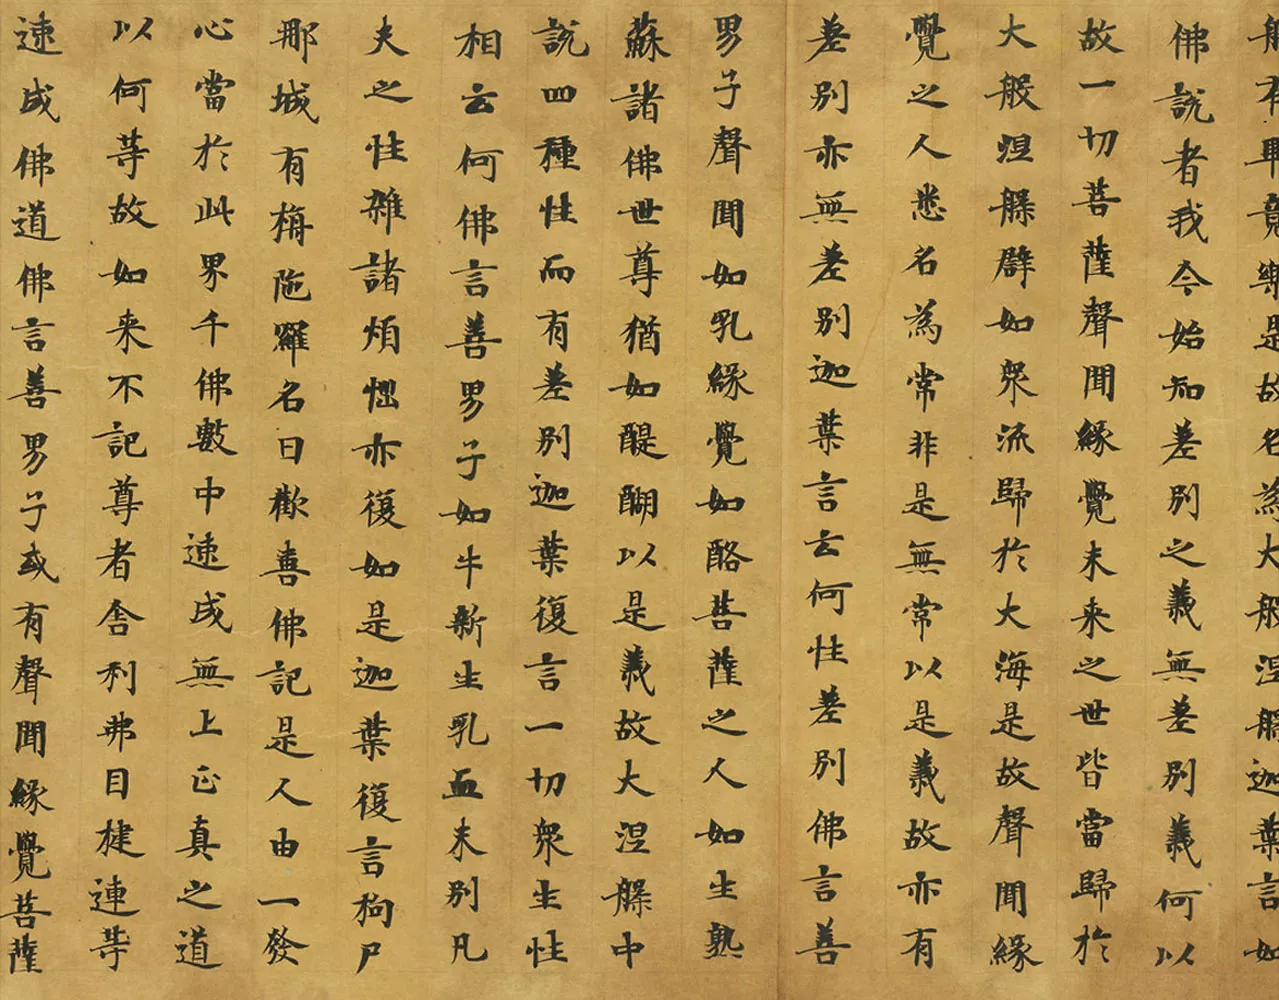 竟樂是故名為大般涅槃迦葉言如
佛說者我今始知差別之義無差別義何以
故一切菩薩聲聞緣覺未来之世皆當歸於
大般涅槃譬如眾流歸於大海是故聲聞緣
覺之人悉名為常非是無常以是義故亦有
差別亦無差別迦葉言云何性差別佛言善
男子聲聞如乳緣覺如酪菩薩之人如生熟
蘇諸佛世尊猶如醍醐以是義故大涅槃中
說四種性而有差別迦葉復言一切眾生性
相云何佛言善男子如牛新生乳血未別凡
夫之性雜諸煩惱亦復如是迦葉復言拘尸
那城有栴陁羅名曰歡喜佛記是人由一發
心當於此界千佛數中速成無上正真之道
以何等故如来不記尊者舍利弗目揵連等
速成佛道佛言善男子或有聲聞緣覺菩薩